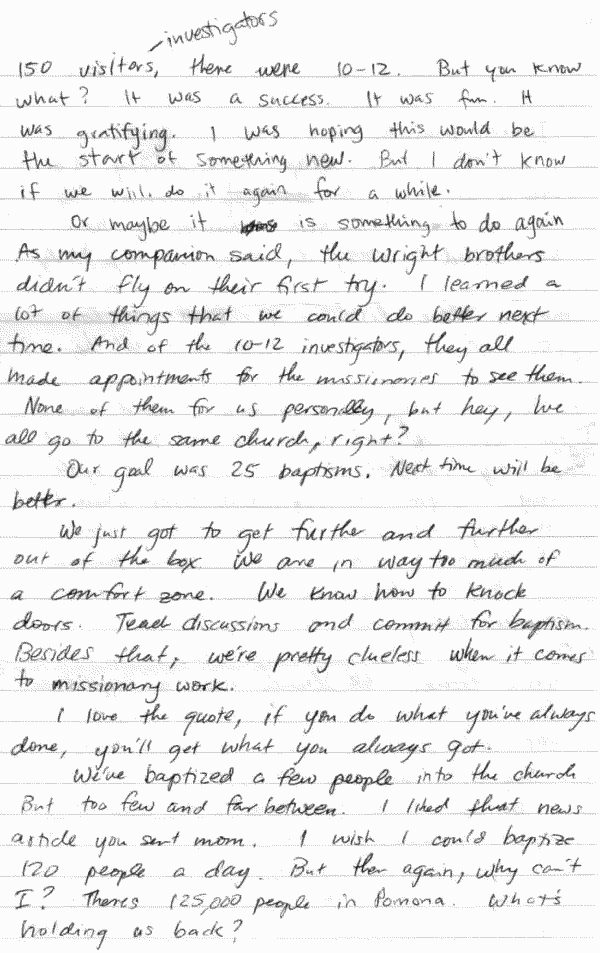 investigators
150 visitors, there were 10-12. But you know
what? It was a success. It was fun. It
was gratifying. I was hoping this would be
the start of something new. But I don't know
if we will do it again for a while.
Or maybe it is something to do again
As my companion said, the Wright brothers
didn't fly on their first try. I learned a
lot of things that we could do better next
time. And of the 10-12 investigators, they all
made appointments for the missionaries to see them.
None of them for us personally, but hey, we
all go to the same church, right?
Our goal was 25 baptisms. Next time will be
better.
We just got to get further and further
out of the box We are in way too much of
a comfort zone. We know how to knock
doors. Teach discussions and commit for baptism.
Besides that, we're pretty clueless when it comes
to missionary work.
I love the quote, if you do what you've always
done, you'll get what you always got.
We've baptized a few people into the church
But too few and far between. I liked that news
article you sent mom. I wish I could baptize
120 people a day. But then again, why can't
I? Theres 125,000 people in Pomona. What's
holding us back?